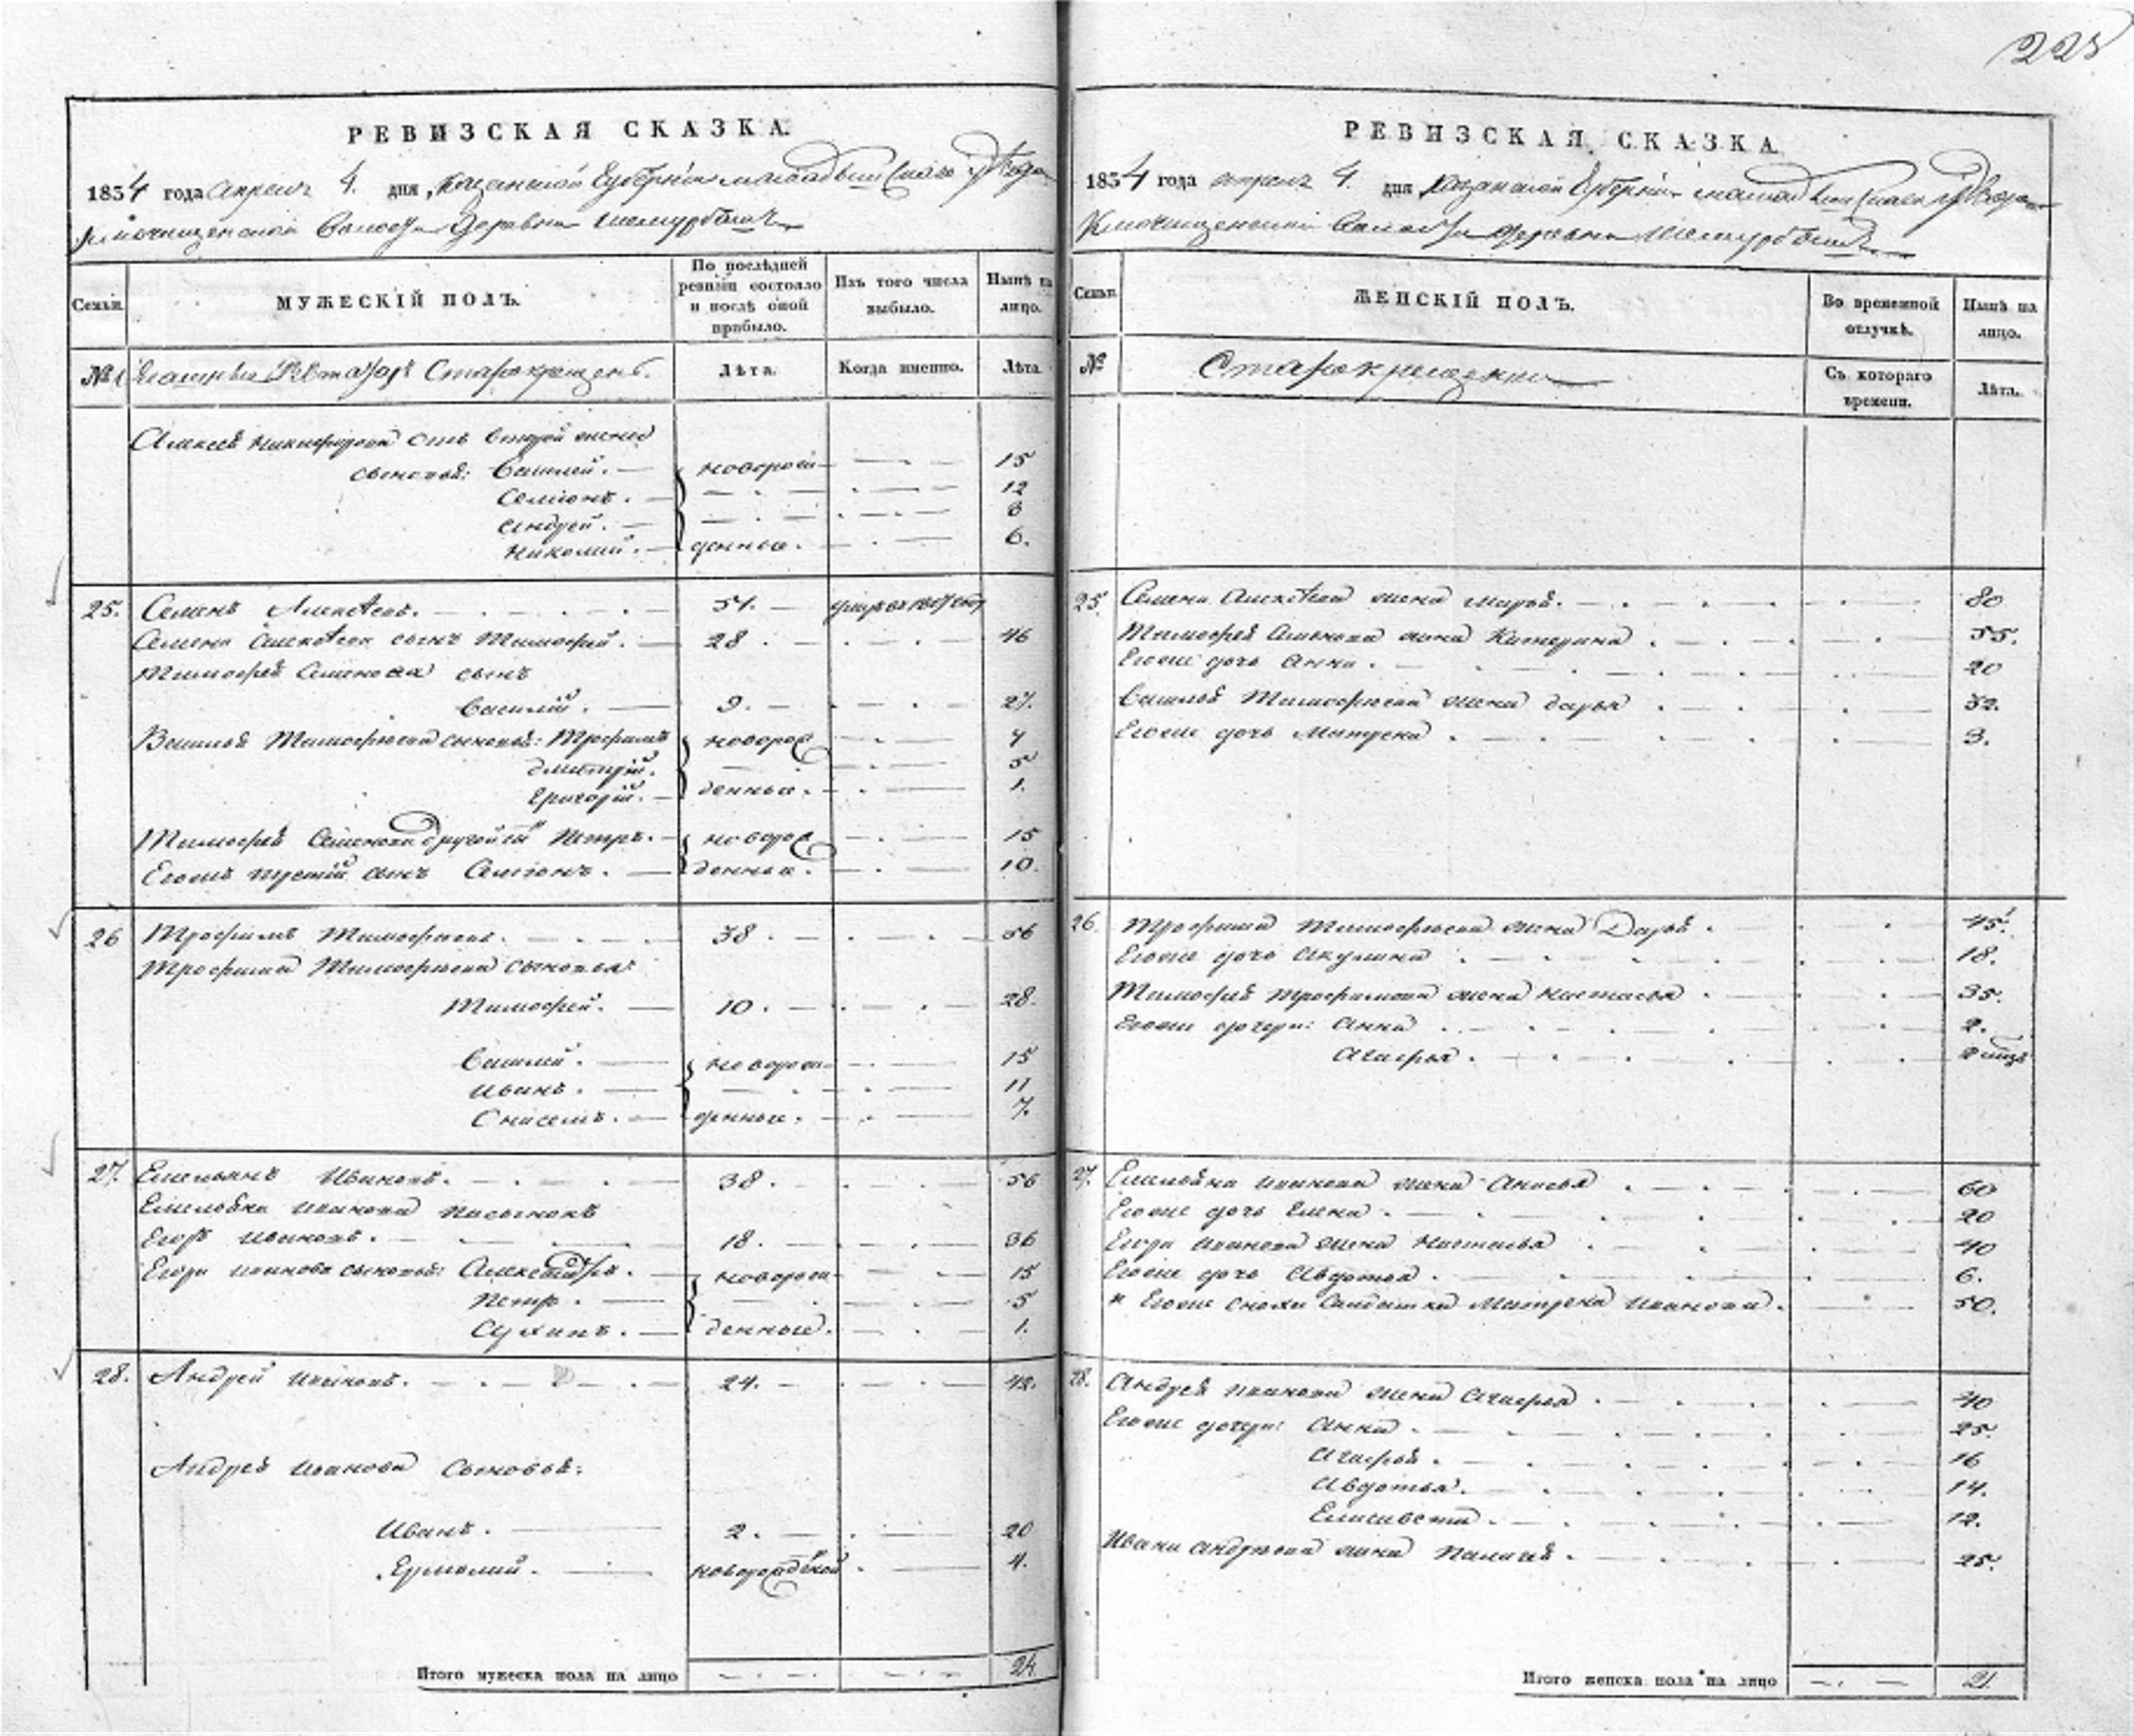 225
РЕВИЗСКАЯ СКАЗКА.
1854 года апреля 4. дня, Казанской Губернии уезда
волости деревни
Семьи.
МУЖЕСКІЙ ПОЛЪ.
По послѣдней ревизіи состояло и послѣ оной прибыло.
Изъ того числа выбыло.
Нынѣ на лицо.
№
Старокрещенъ.
Лѣта.
Когда именно.
Лѣта.
Алексея Никифорова отъ второй жены
сыновья: Василей. новорож- 15
Семіонъ. 12
Андрей. 8
Николай. денные. 6.
25. Семенъ Алексѣевъ. 51. умеръ
Семена Алексѣева сынъ Тимофей. 28 46
Тимофея Семенова сынъ
Василій. 9. 27.
Василья Тимофеева сыновья: Трофимъ новорож 7
Дмитрій. 5
Григорій. денные. 1.
Тимофея Семенова другой сынъ Петръ. новорож 15
Егоже третій сынъ Семіонъ. денные. 10.
26 Трофимъ Тимофеевъ. 38. 56
Трофима Тимофеева сыновья:
Тимофей. 10. 28.
Василей. новорож- 15
Иванъ. 11
денные. 7.
27. Емельянъ Ивановъ. 38. 56
Емельяна Иванова пасынокъ
Егоръ Ивановъ. 18. 36
Егора Иванова сыновья: Александръ. новорож- 15
Петръ. 5
денные. 1.
28. Андрей Ивановъ. 24. 42.
Андрея Иванова сыновья:
Иванъ. 2. 20
Ермолай. новорожденной 4.
Итого мужеска пола на лицо 24.
РЕВИЗСКАЯ СКАЗКА
1854 года апреля 4. дня Казанской Губернии уезда
волости деревни
Семьи.
ЖЕНСКІЙ ПОЛЪ.
Во временной отлучкѣ.
Нынѣ на лицо.
№
Старокрещенки
Съ котораго времени.
Лѣта.
25. Семена Алексѣева жена Марья. 80
Тимофея Семенова жена Катерина 55.
Егоже дочь Анна. 20
Василья Тимофеева жена Дарья 32.
Егоже дочь Матрена 3.
26. Трофима Тимофеева жена Дарья. 45.
Егоже дочь Акулина 18.
Тимофея Трофимова жена Настасья 35.
Егоже дочери: Анна 2.
Агафья.
27. Емельяна Иванова жена Анисья 60
Егоже дочь Елена. 20
Егора Иванова жена Настасья 40
Егоже дочь Авдотья. 6.
Егоже сноха солдатка Матрена Иванова. 50.
28. Андрея Иванова жена Агафья 40
Егоже дочери: Анна. 25.
Агафья. 16
Авдотья. 14.
Елисавета. 12.
Ивана Андреева жена Палагея. 25.
Итого женска пола на лицо 21.